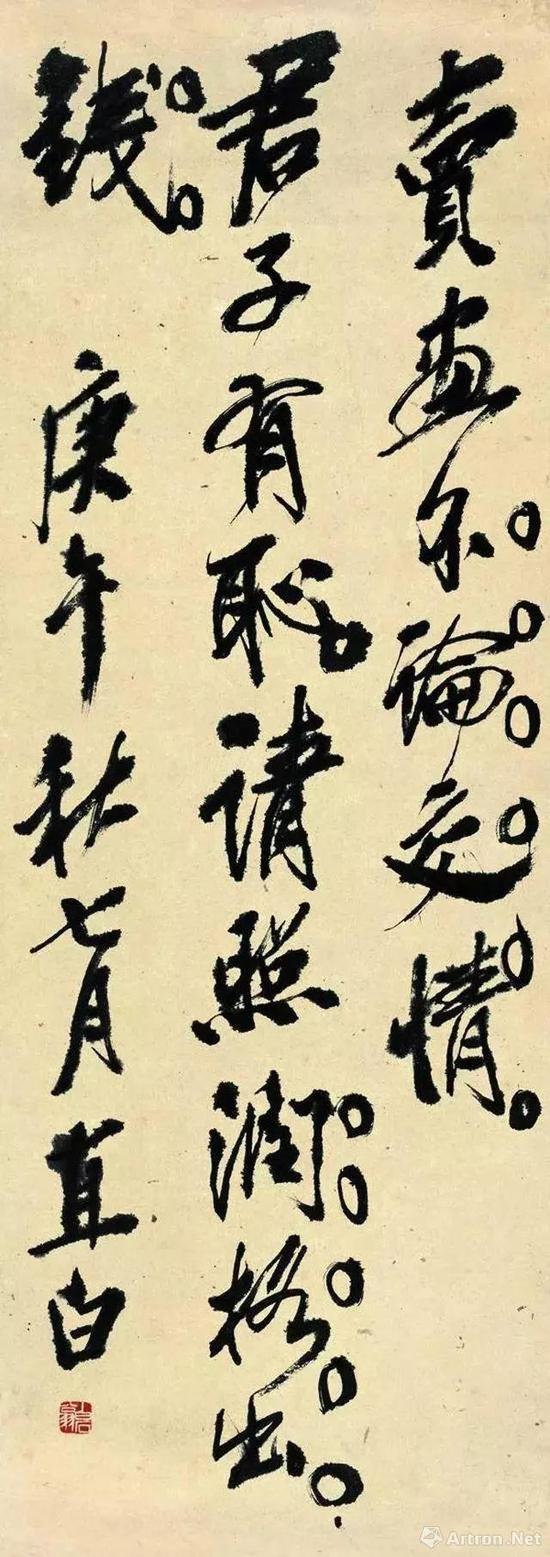 賣畫不論交情。
君子有恥。請照潤格出
錢。庚午秋七月直白
Artron.Net